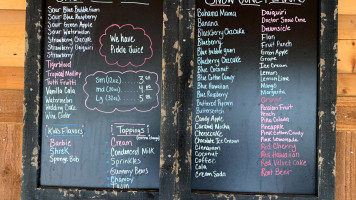 Sour Blue Bubblegum
Sour Blue Raspberry
Sour Green Apple
Sour Watermelon
Strawberry Cheesecake
Strawberry Daiquiri
Strawberry
Tigerblood
Tropical Medley
Tutti Frutti
Vanilla Cake
Watermelon
Wedding Cake
Wine Cooler
We have
Pickle Juice
Sm (12oz) 3
md (16oz) 4
Kid's Flavors
Barbie
Shrek
Sponge Bob
Toppings
Cream
Condensed Milk
Sprinkles
Gummy Bears
Chamoy
Bahama Mama
Banana
Black Cherry
Blackberry
Blueberry
Blue bubble gum
Blueberry Cheesecake
Blue Coconut
Blue Cotton Candy
Blue Hawaiian
Blue Raspberry
Buttered Popcorn
Butterscotch
Candy Apple
Caramel Mocha
Cheesecake
Chocolate Ice Cream
Cinnamon
Coconut
Coffee
Cola
Cream Soda
Daiquiri
Doctor Snow Cone
Dreamsicle
Fruit Punch
Green Apple
Grape
Ice Cream
Lemon
Lemon Lime
Mango
Margarita
Orange
Passion Fruit
Peach
Pina Colada
Pineapple
Pink Cotton Candy
Pink Lemonade
Red Cherry
Red Hawaiian
Red Velvet Cake
Root Beer